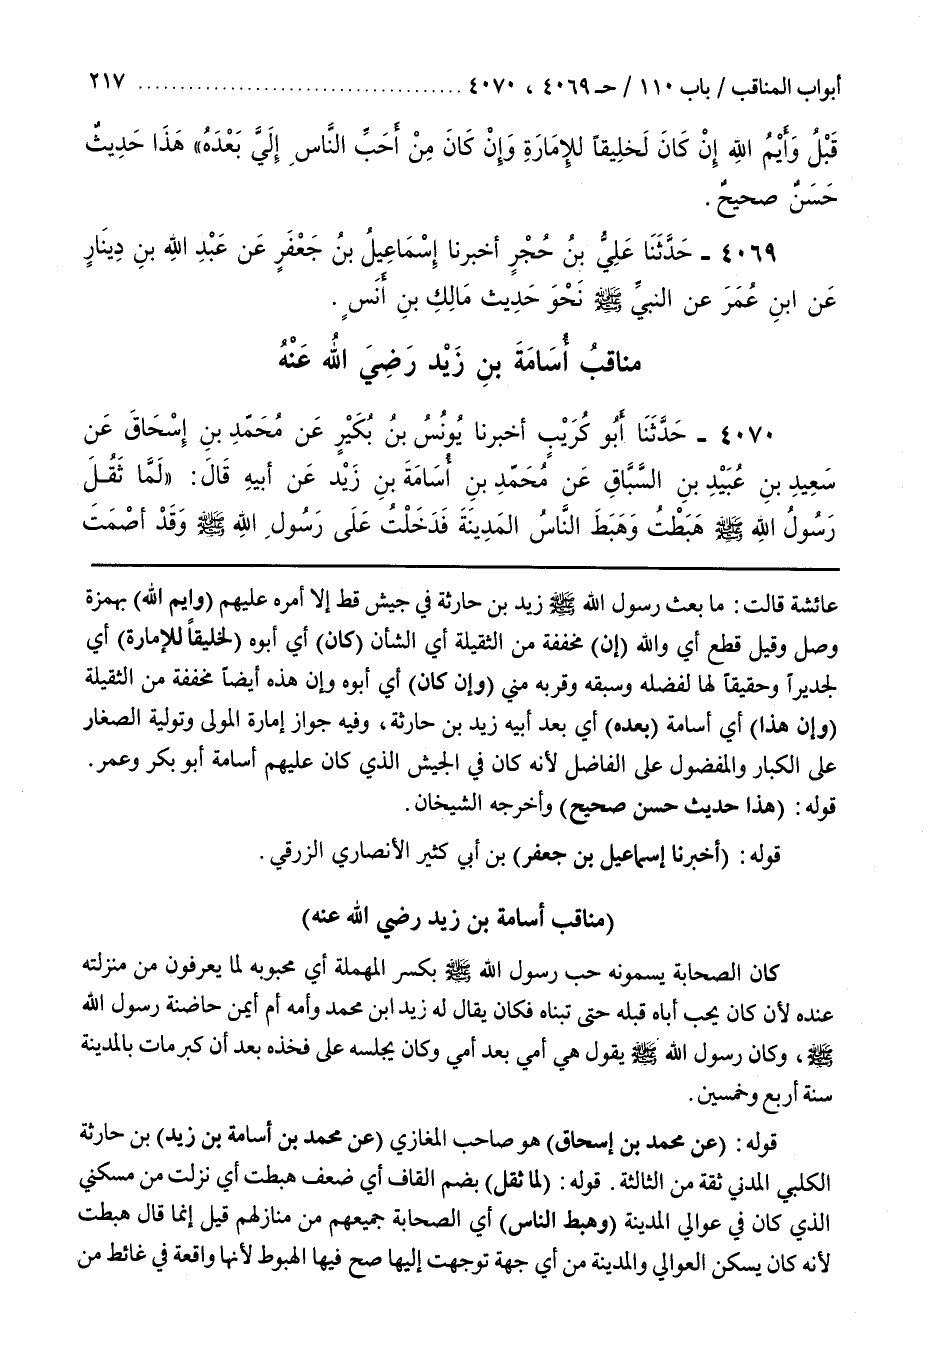 أبواب المناقب / باب ١١٠ / حـ ٤٠٦٩ ، ٤٠٧٠ ........................................ ٢١٧
قَبْلُ وَأَيْمُ اللهِ إِنْ كَانَ لَخلِيقاً للإِمَارَةِ وَإِنْ كَانَ مِنْ أَحَبِّ النَّاسِ إِلَيَّ بَعْدَهُ» هَذَا حَدِيثٌ
حَسَنٌ صحيحٌ .
٤٠٦٩ ـ حَدَّثَنَا عَلِيُّ بنُ حُجْرٍ أخبرنا إِسْمَاعِيلُ بنُ جَعْفَرٍ عَن عَبْدِ اللهِ بنِ دِينَارٍ
عَن ابنِ عُمَرَ عن النبيِّ ﷺ نَحْوَ حَدِيث مَالِكِ بنِ أَنَسٍ .
مناقبُ أُسَامَةَ بنِ زَيْد رَضِيَ اللهُ عَنْهُ
٤٠٧٠ ـ حَدَّثَنَا أَبُو كُرَيْبٍ أخبرنا يُونُسُ بنُ بُكَيْرٍ عَن مُحَمّدِ بنِ إِسْحَاقَ عَن
سَعِيدِ بنِ عُبَيْدِ بنِ السَّبَّاقِ عَن مُحَمّدِ بنِ أُسَامَةَ بنِ زَيْد عَن أبيهِ قَالَ: «لَمَّا ثَقُلَ
رَسُولُ اللهِ ﷺ هَبَطْتُ وَهَبَطَ النَّاسُ المَدِينَةَ فَدَخَلْتُ عَلَى رَسُولِ اللهِ ﷺ وَقَدْ أصْمَتَ
عائشة قالت: ما بعث رسول الله ﷺ زيد بن حارثة في جيش قط إلا أمره عليهم (وايم الله) بهمزة
وصل وقيل قطع أي والله (إن) مخففة من الثقيلة أي الشأن (كان) أي أبوه (لخليقاً للإمارة) أي
لجديراً وحقيقاً لها لفضله وسبقه وقربه مني (وإن كان) أي أبوه وإن هذه أيضاً مخففة من الثقيلة
(وإن هذا) أي أسامة (بعده) أي بعد أبيه زيد بن حارثة، وفيه جواز إمارة المولى وتولية الصغار
على الكبار والمفضول على الفاضل لأنه كان في الجيش الذي كان عليهم أسامة أبو بكر وعمر.
قوله: (هذا حديث حسن صحيح) وأخرجه الشيخان.
قوله: (أخبرنا إسماعيل بن جعفر) بن أبي كثير الأنصاري الزرقي.
(مناقب أسامة بن زيد رضي الله عنه)
كان الصحابة يسمونه حب رسول الله ﷺ بكسر المهملة أي محبوبه لما يعرفون من منزلته
عنده لأن كان يحب أباه قبله حتى تبناه فكان يقال له زيد ابن محمد وأمه أم أيمن حاضنة رسول الله
ﷺ، وكان رسول الله ﷺ يقول هي أمي بعد أمي وكان يجلسه على فخذه بعد أن كبر مات بالمدينة
سنة أربع وخمسين.
قوله: (عن محمد بن إسحاق) هو صاحب المغازي (عن محمد بن أسامة بن زيد) بن حارثة
الكلبي المدني ثقة من الثالثة. قوله: (لما ثقل) بضم القاف أي ضعف هبطت أي نزلت من مسكني
الذي كان في عوالي المدينة (وهبط الناس) أي الصحابة جميعهم من منازلهم قيل إنما قال هبطت
لأنه كان يسكن العوالي والمدينة من أي جهة توجهت إليها صح فيها الهبوط لأنها واقعة في غائط من